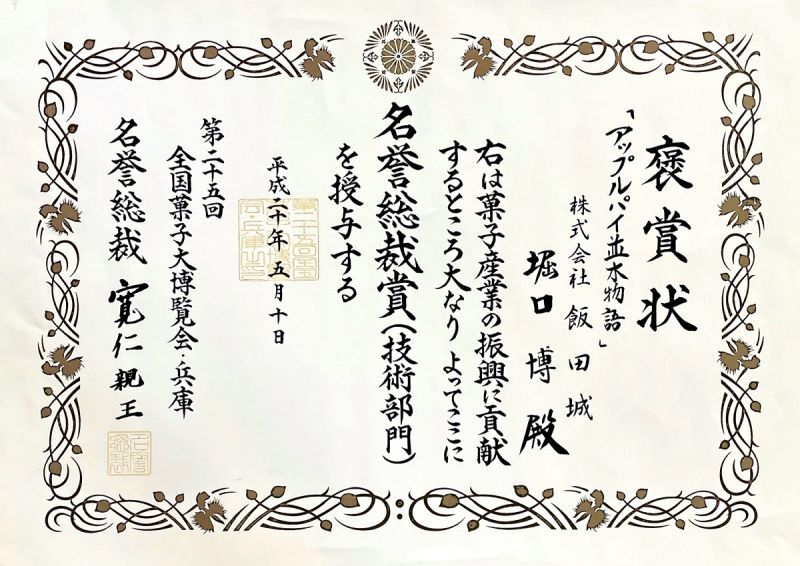 褒賞状
「アップルパイ並木物語」
株式会社 飯田城
堀口 博 殿
右は菓子産業の振興に貢献
するところ大なり よってここに
名誉総裁賞(技術部門)
を授与する
平成二十年五月十日
第二十五回
全国菓子大博覧会・兵庫
名誉総裁 寛仁親王